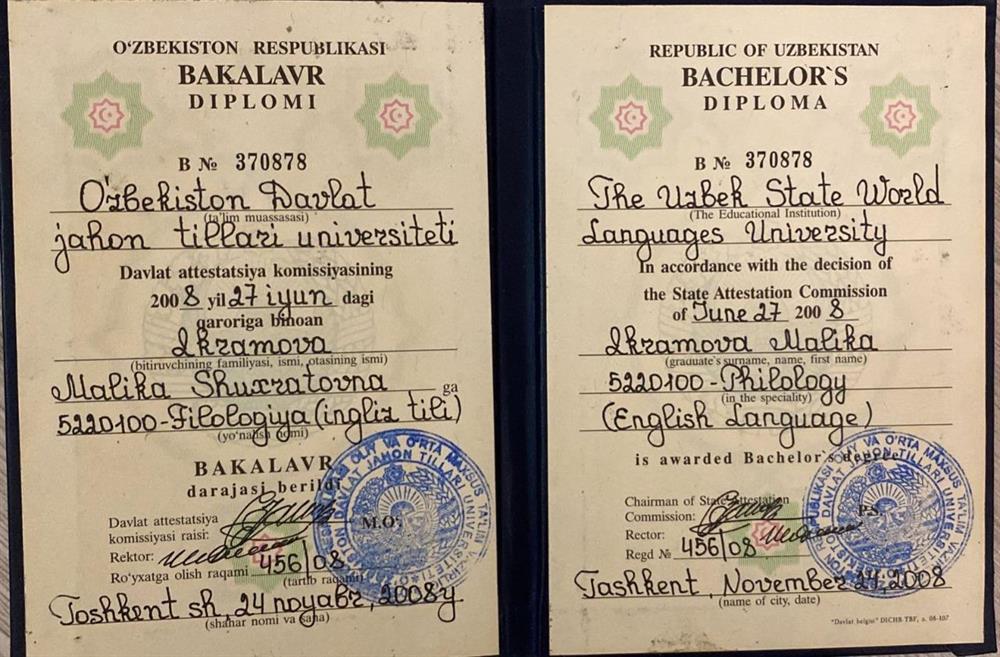 O‘ZBEKISTON RESPUBLIKASI
BAKALAVR
DIPLOMI
B № 370878
O'zbekiston Davlat
(ta’lim muassasasi)
jahon tillari universiteti
Davlat attestatsiya komissiyasining
2008 yil 27 iyun dagi
qaroriga binoan
Ikramova
(bitiruvchining familiyasi, ismi, otasining ismi)
Malika Shuxratovna ga
5220100-Filologiya (ingliz tili)
(yo‘nalish nomi)
BAKALAVR
darajasi berildi
Davlat attestatsiya
komissiyasi raisi:
M.O‘.
Rektor:
Ro‘yxatga olish raqami 456/08
(tartib raqami)
Toshkent sh, 24 noyabr, 2008y
(shahar nomi va sana)
REPUBLIC OF UZBEKISTAN
BACHELOR`S
DIPLOMA
B № 370878
The Uzbek State World
(The Educational Institution)
Languages University
In accordance with the decision of
the State Attestation Commission
of June 27 2008
Ikramova Malika
(graduate's surname, name, first name)
5220100-Philology
(in the speciality)
(English Language)
is awarded Bachelor`s degree
Chairman of State Attestation
Commission:
P.S.
Rector:
Regd № 456/08
Tashkent, November 24, 2008
(name of city, date)
"Davlat belgisi" DICHB TBF, z. 08-107